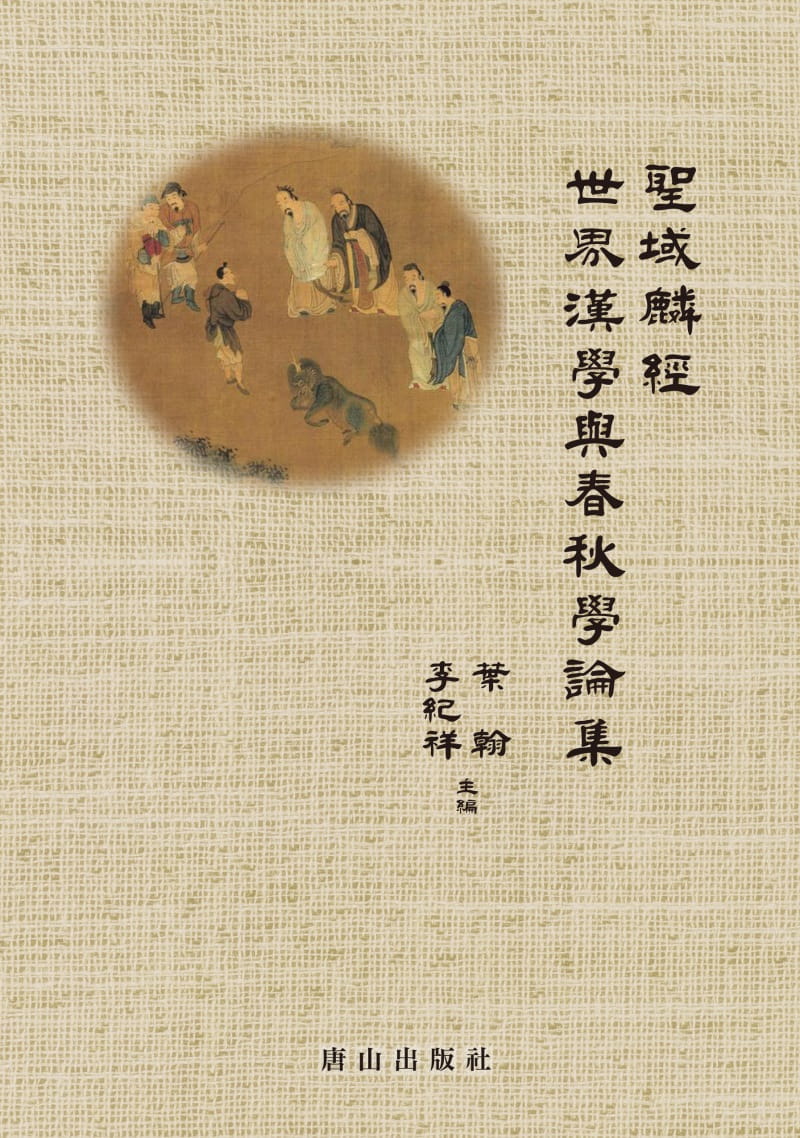 聖域麟經
世界漢學與春秋學論集
葉翰
李紀祥
主編
唐山出版社